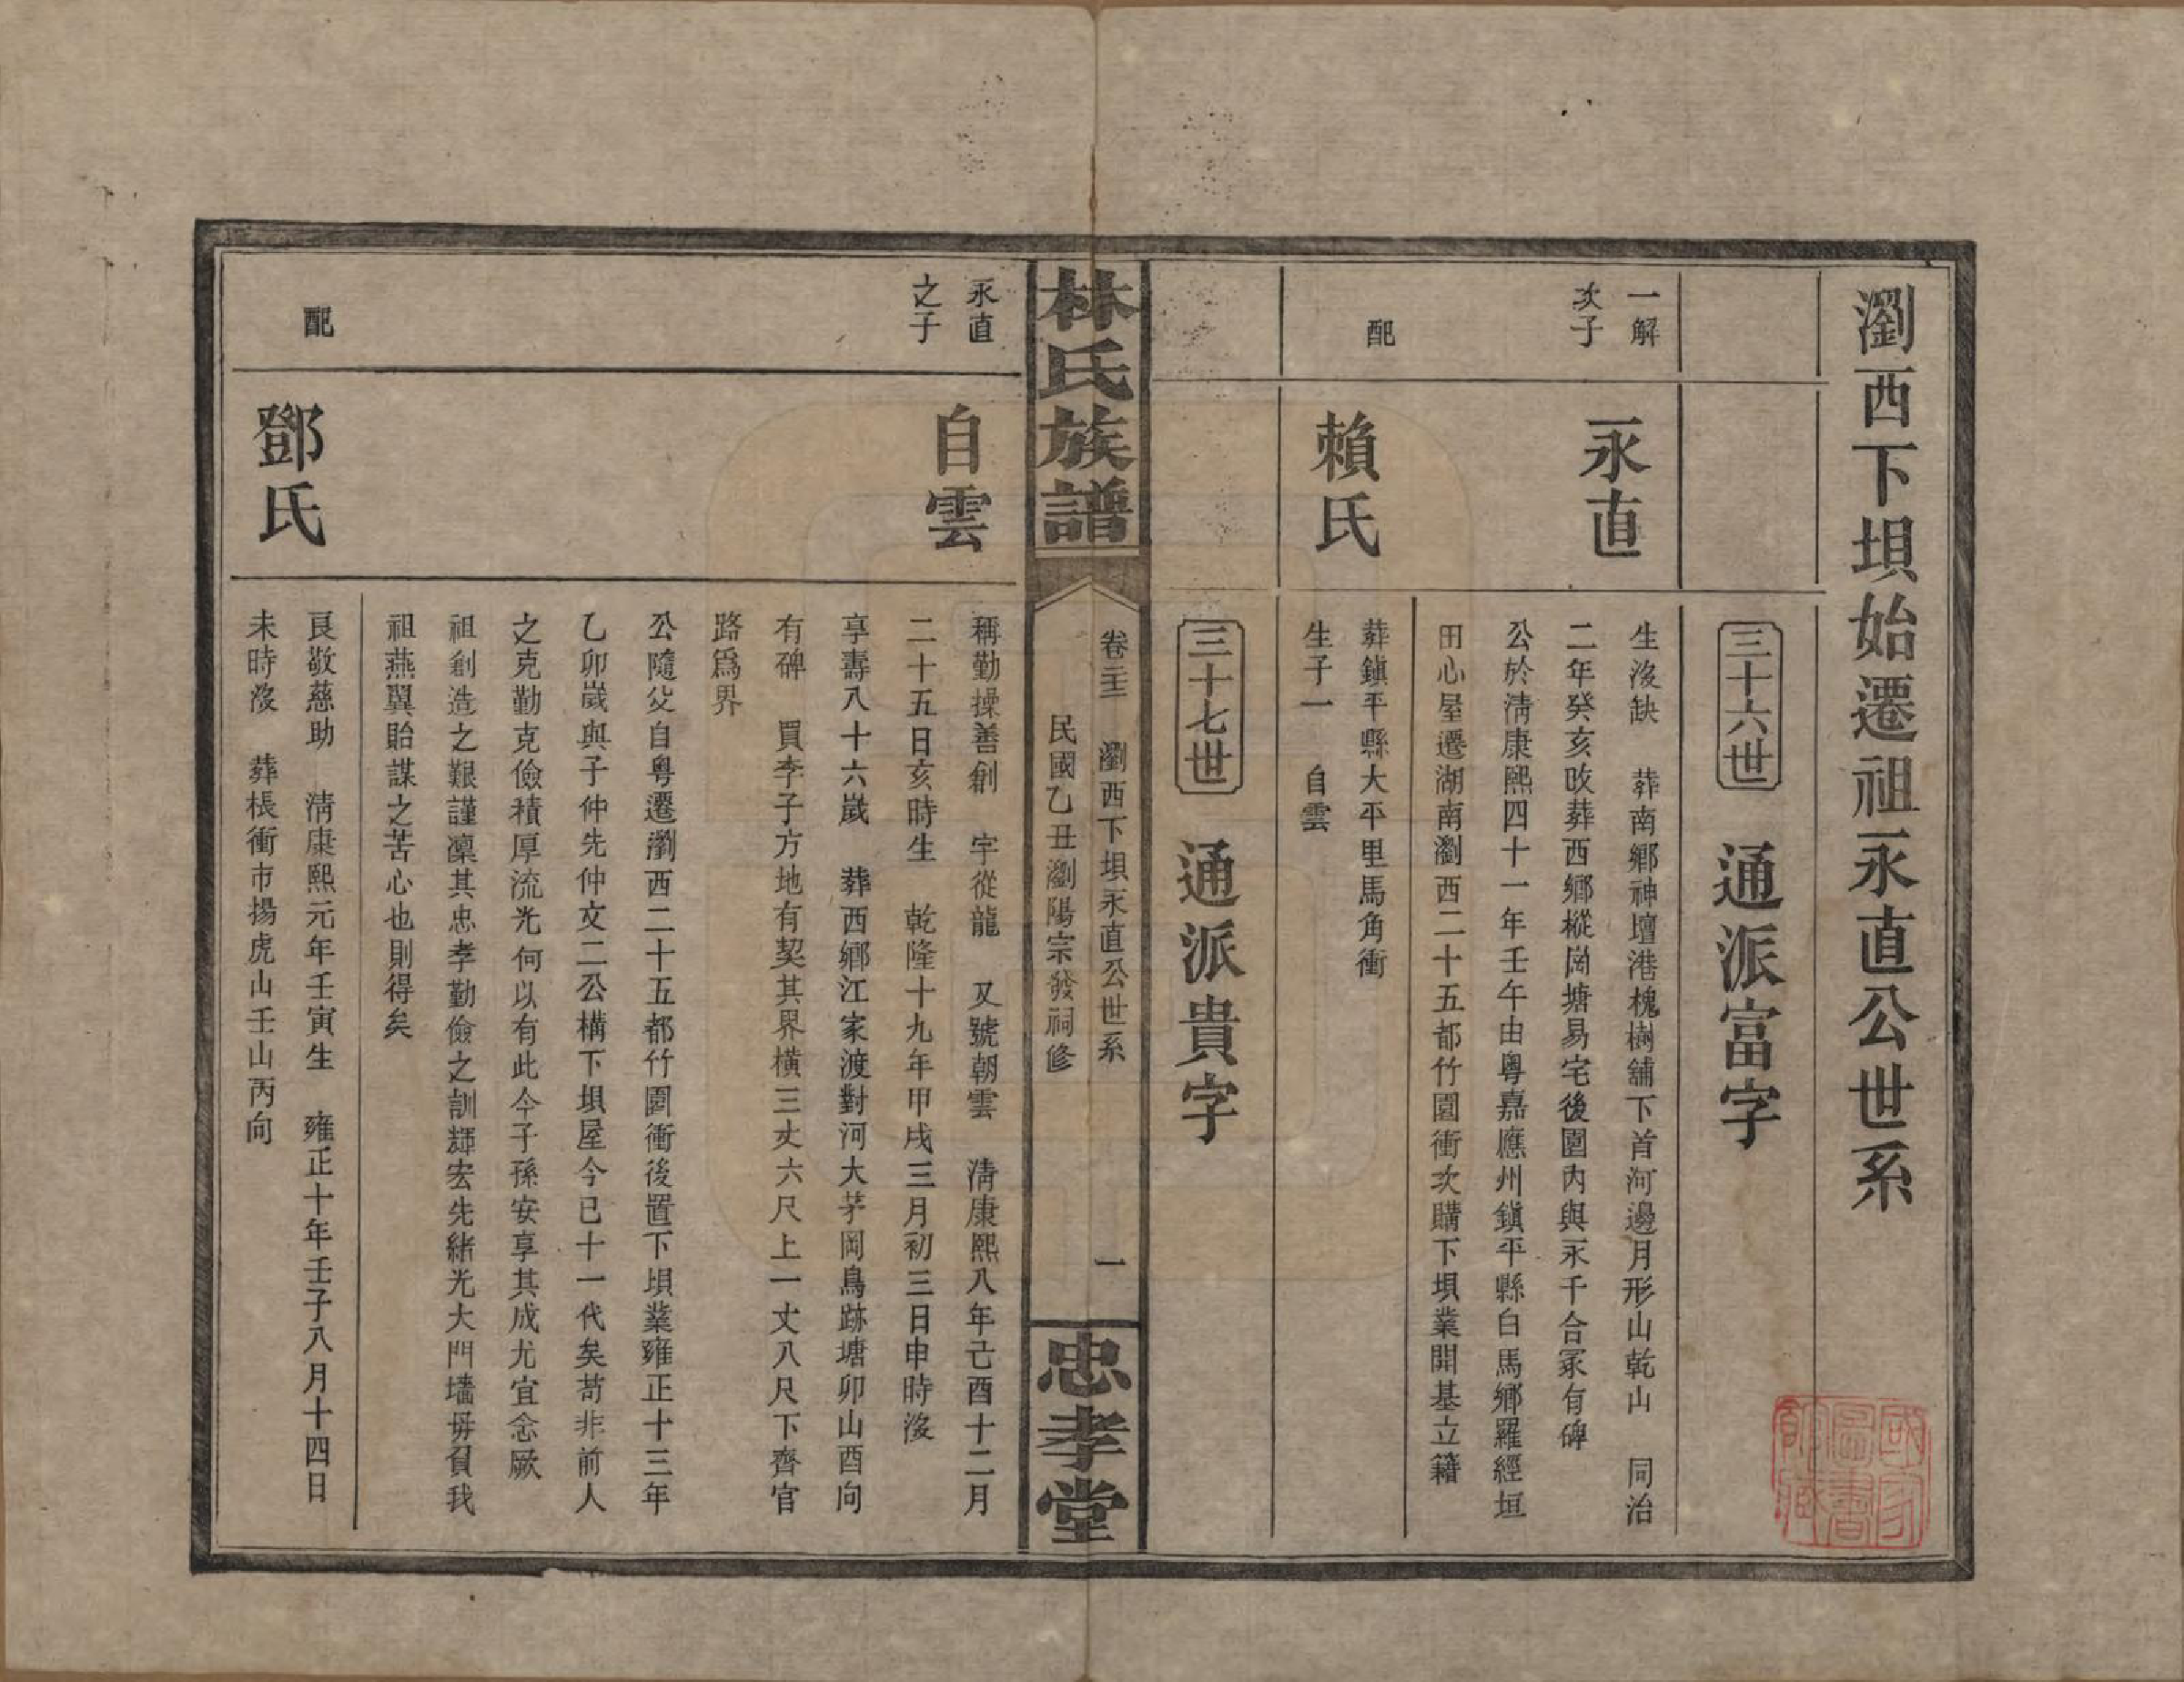 瀏西下垻始遷祖永直公世系
三十六世　通派富字
一解
次子
永直
生沒缺　葬南鄉神壇港槐樹舖下首河邊月形山乾山　同治
二年癸亥改葬西鄉樅岡塘易宅後園內與永千合冢有碑
公於淸康熙四十一年壬午由粵嘉應州鎭平縣白馬鄉羅經垣
田心屋遷湖南瀏西二十五都竹園衝次購下垻業開基立籍
配
賴氏
葬鎭平縣大平里馬角衝
生子一　自雲
三十七世　通派貴字
林氏族譜
卷二十三　瀏西下垻永直公世系　一
民國乙丑瀏陽宗發祠修
忠孝堂
永直
之子
自雲
稱勤操善創　字從龍　又號朝雲　淸康熙八年己酉十二月
二十五日亥時生　乾隆十九年甲戌三月初三日申時沒
享壽八十六歲　葬西鄉江家渡對河大茅岡鳥跡塘卯山酉向
有碑　買李子方地有契其界橫三丈六尺上一丈八尺下齊官
路爲界
公隨父自粵遷瀏西二十五都竹園衝後置下垻業雍正十三年
乙卯歲與子仲先仲文二公構下垻屋今已十一代矣苟非前人
之克勤克儉積厚流光何以有此今子孫安享其成尤宜念厥
祖創造之艱謹凜其忠孝勤儉之訓輝宏先緖光大門墻毋負我
祖燕翼貽謀之苦心也則得矣
配
鄧氏
良敬慈助　淸康熙元年壬寅生　雍正十年壬子八月十四日
未時沒　葬棖衝市揚虎山壬山丙向
國家
圖書
館藏